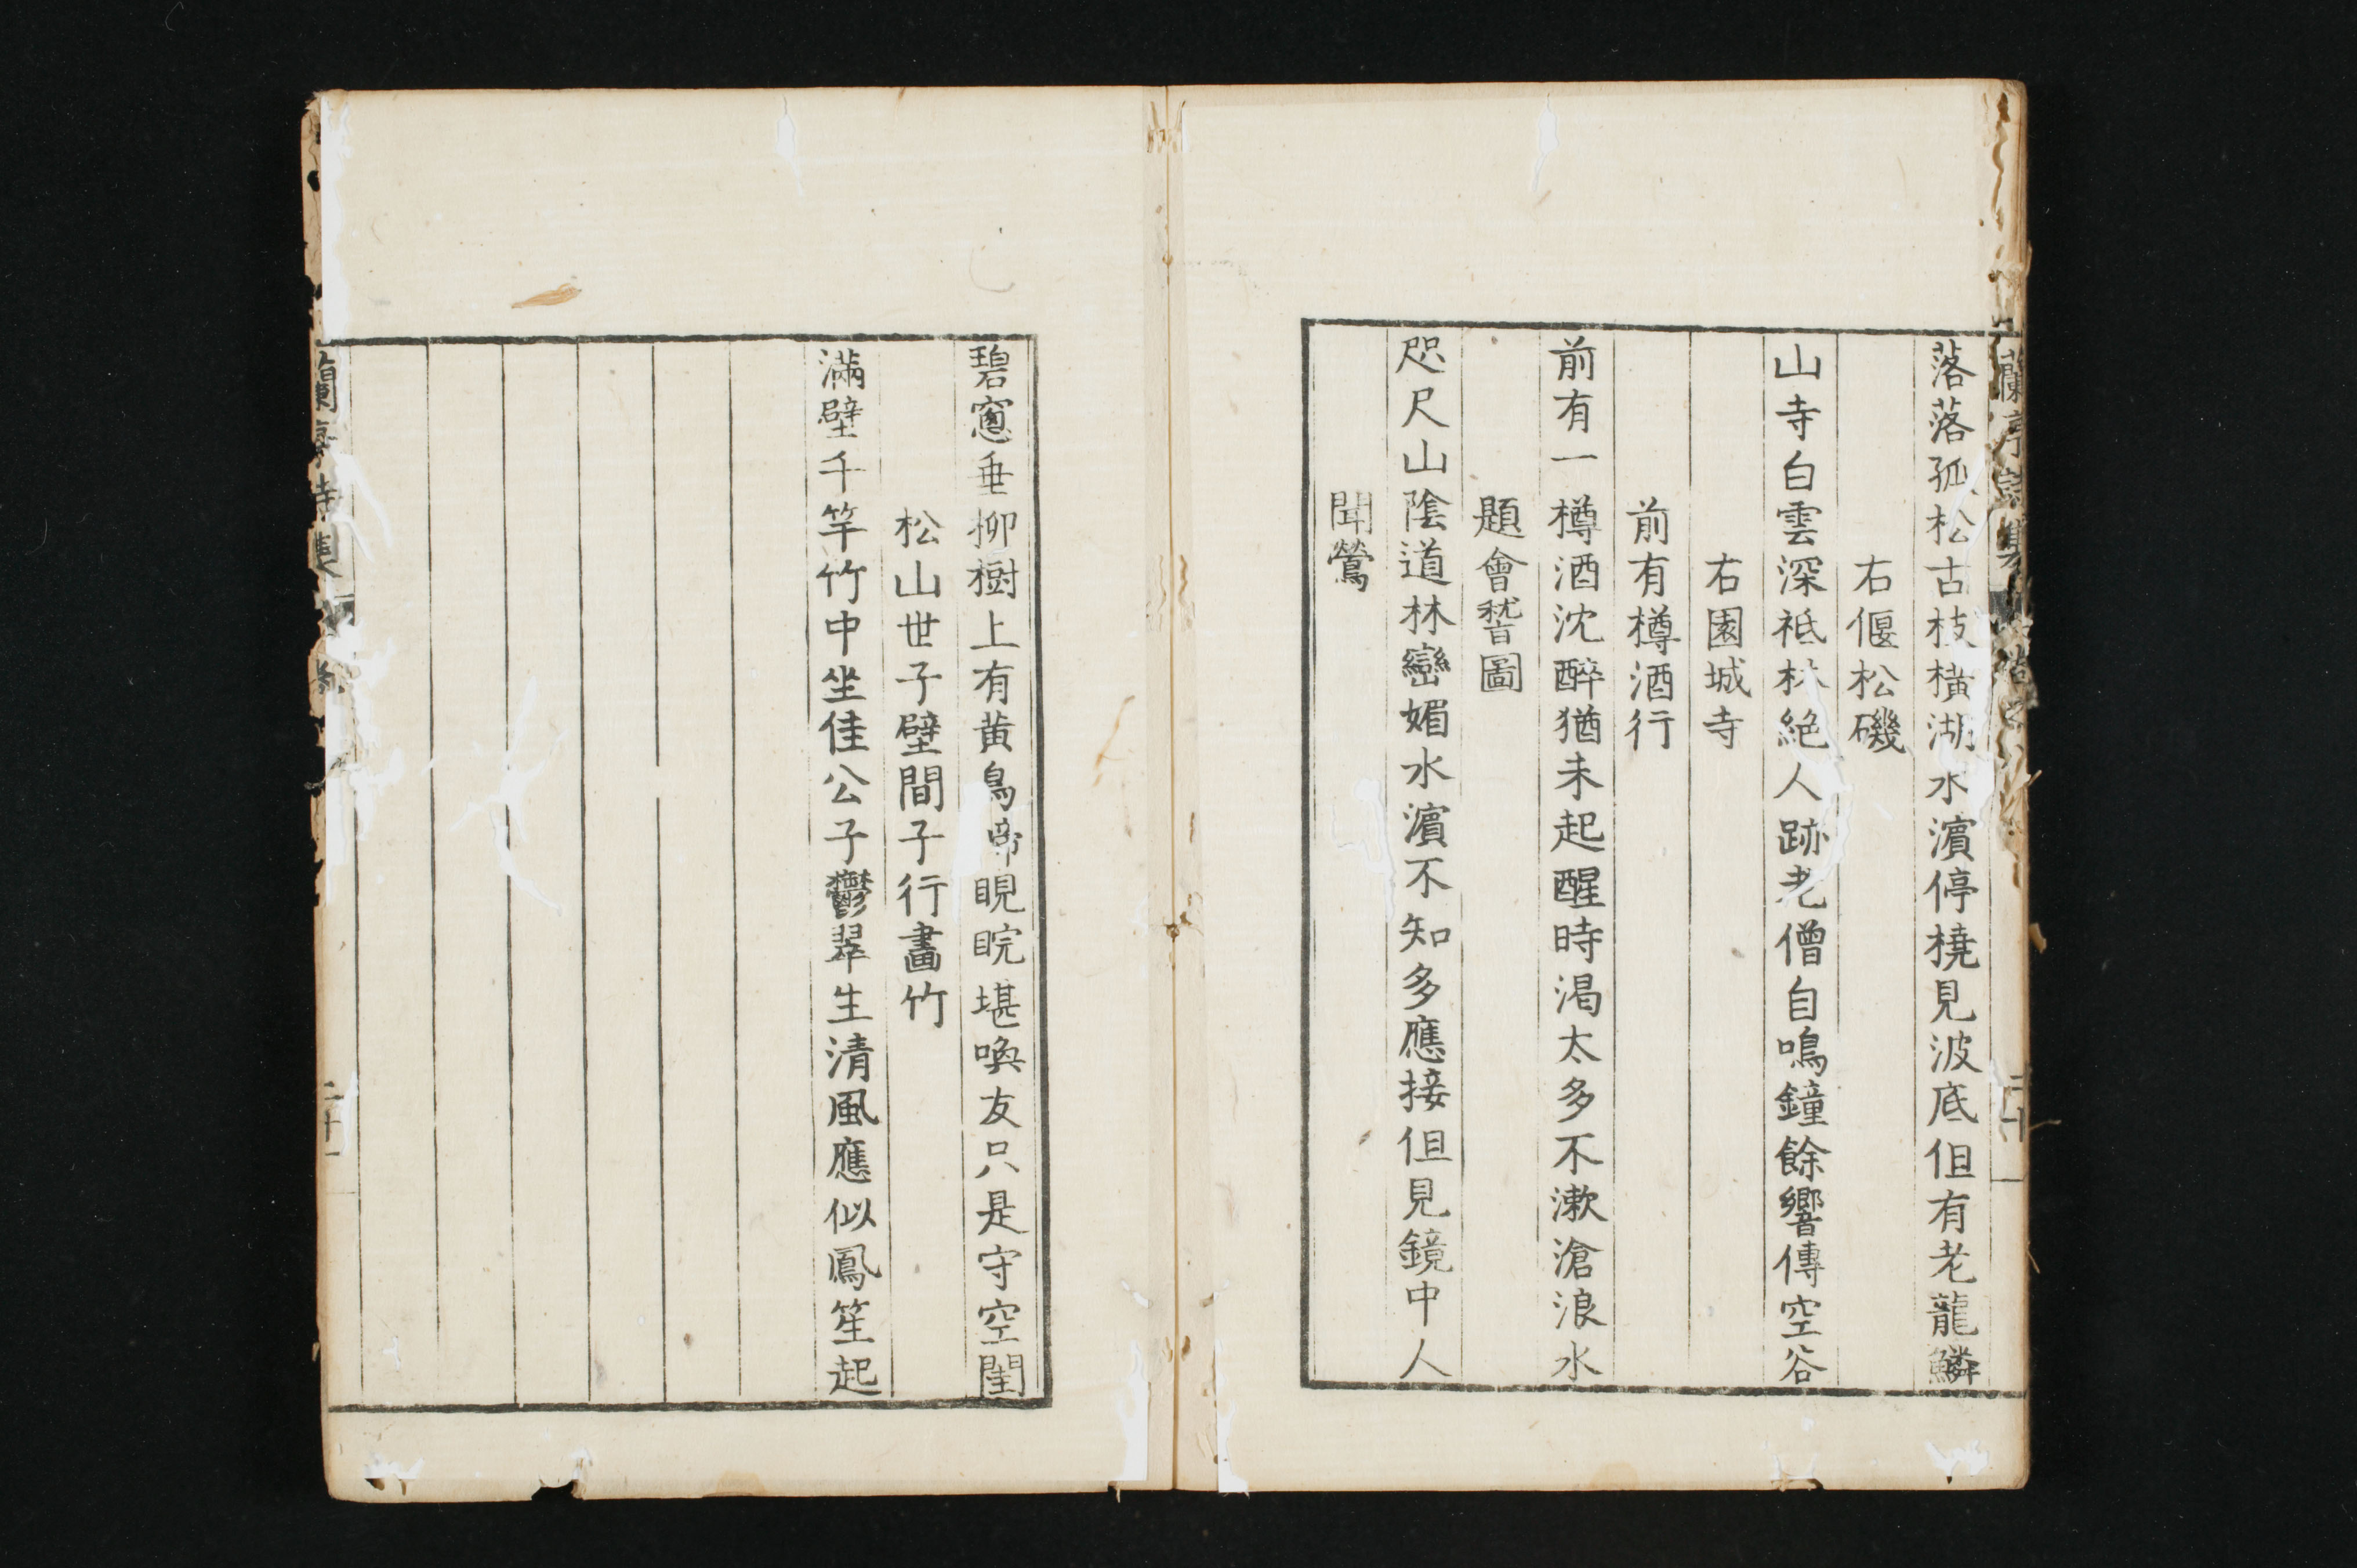 落落孤松古枝橫湖水濱停橈見波底但有老龍鱗
右偃松磯
山寺白雲深祗林絶人跡老僧自鳴鐘餘響傳空谷
右園城寺
前有樽酒行
前有一樽酒沈醉猶未起醒時渇太多不漱滄浪水
題會嵇圖
咫尺山陰道林巒媚水濱不知多應接但見鏡中人
聞鶯
碧窻垂柳樹上有黄鳥啼睍睆堪喚友只是守空閨
松山世子壁間子行畵竹
滿壁千竿竹中坐佳公子鬱翠生清風應似鳳笙起